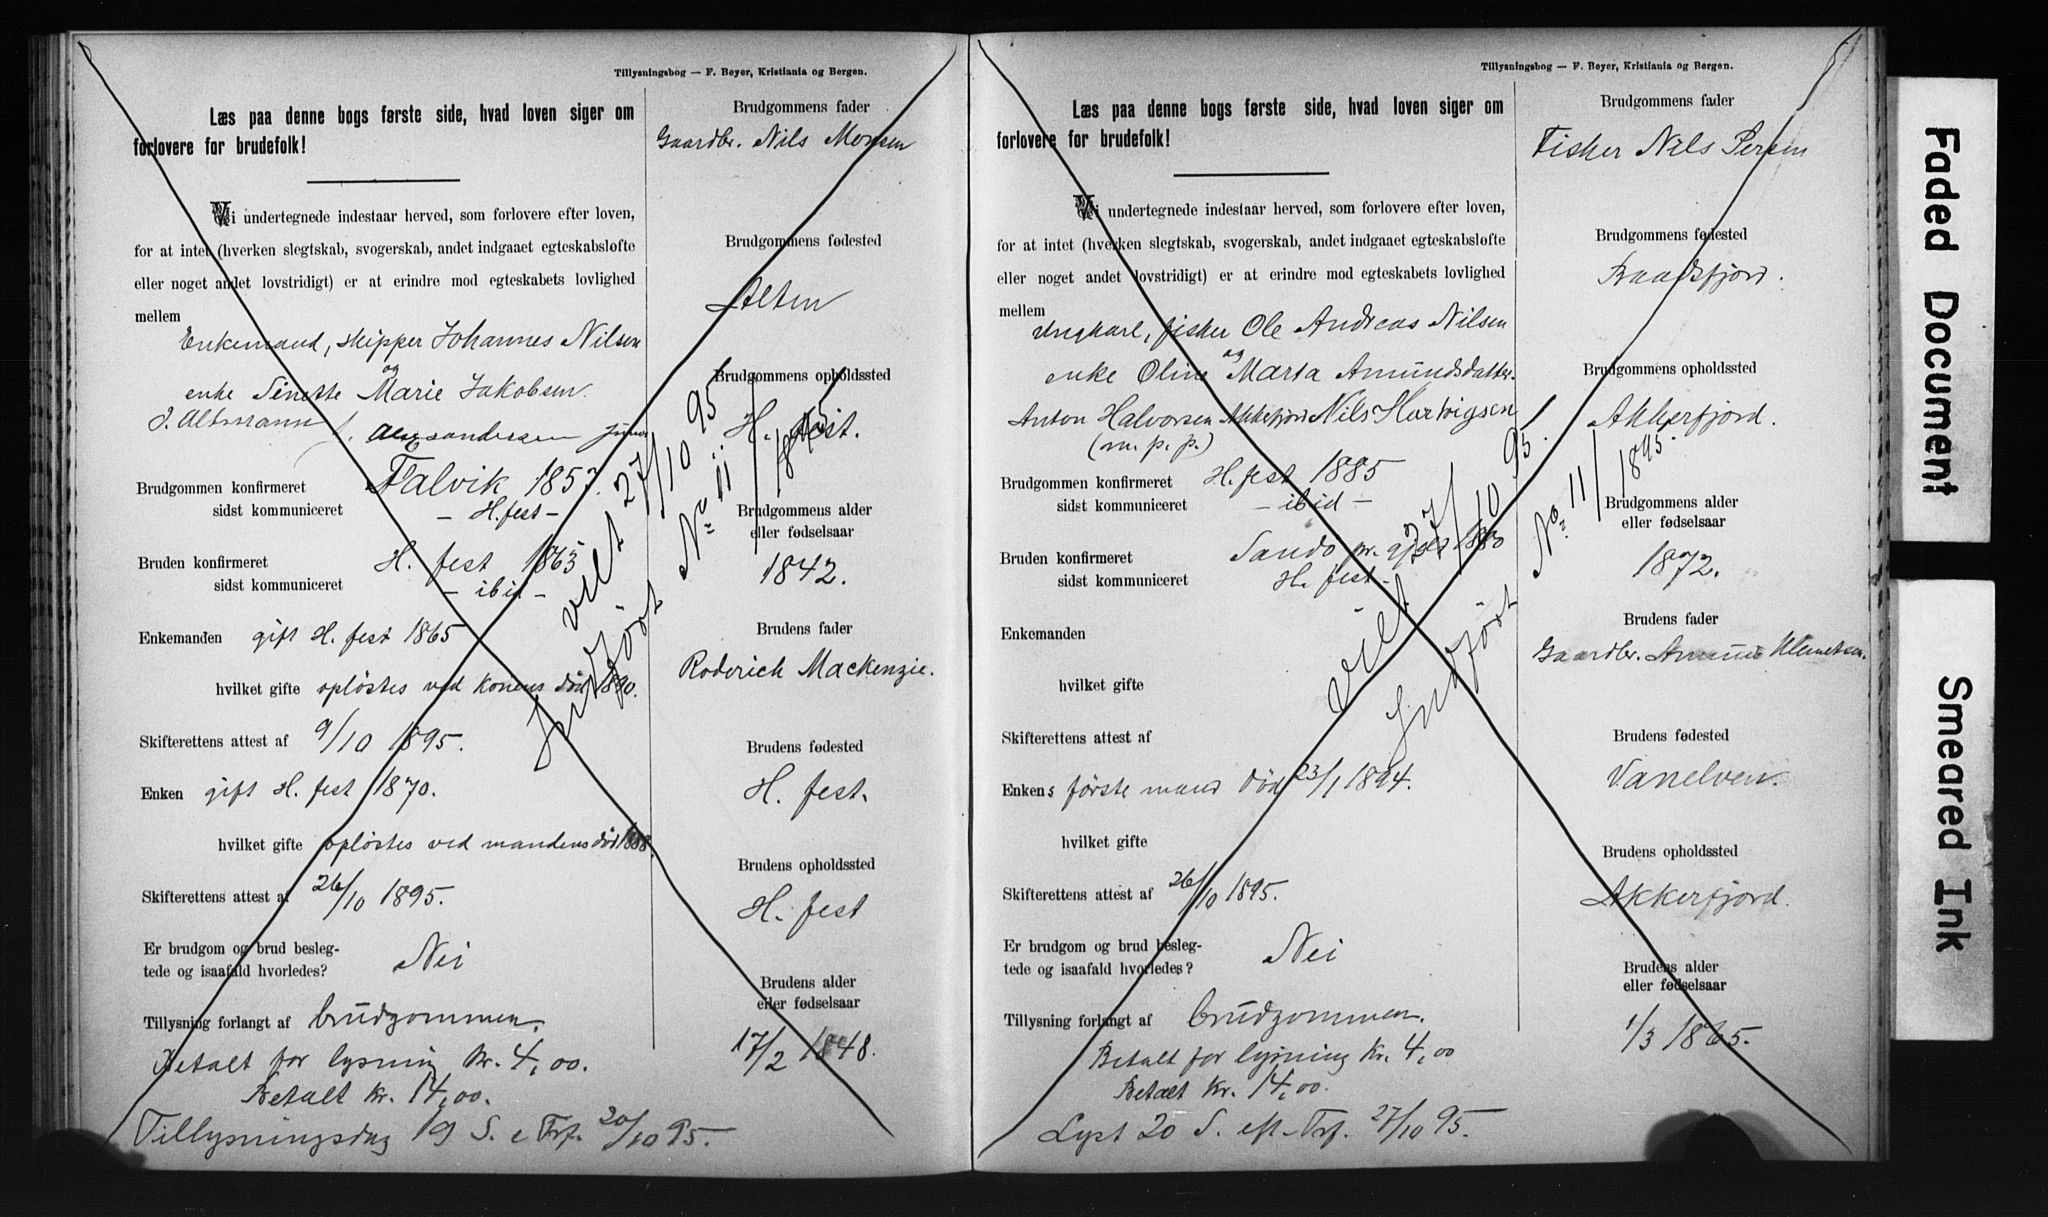 Tillysningsbog — F. Beyer, Kristiania og Bergen.
Læs paa denne bogs første side, hvad loven siger om
forlovere for brudefolk!
Vi undertegnede indestaar herved, som forlovere efter loven,
for at intet (hverken slegtskab, svogerskab, andet indgaaet egteskabsløfte
eller noget andet lovstridigt) er at erindre mod egteskabets lovlighed
mellem
Enkemand, skipper Johannes Nilsen
og
enke Sinette Marie Jakobsen.
J. Altmann
Falvik 1857.
Brudgommen konfirmeret
sidst kommuniceret — H. fest —
Bruden konfirmeret H. fest 1865
sidst kommuniceret — ibid —
Enkemanden gift H. fest 1865
hvilket gifte opløstes ved konens død 1890.
Skifterettens attest af 9/10 1895.
Enken gift H. fest 1870.
hvilket gifte opløstes ved mandens død 1888.
Skifterettens attest af 26/10 1895.
Er brudgom og brud besleg-
tede og isaafald hvorledes? Nei
Tillysning forlangt af brudgommen.
Betalt for lysning kr. 4,00.
Betalt kr. 14,00.
Tillysningsdag 19 S. e Trf. 20/10 95.
viet 27/10 95
Indført No 11 / 1895
Brudgommens fader
Gaardbr. Nils Monsen
Brudgommens fødested
Alten
Brudgommens opholdssted
H. fest.
Brudgommens alder
eller fødselsaar
1842.
Brudens fader
Roderich Mackenzie.
Brudens fødested
H. fest.
Brudens opholdssted
H. fest
Brudens alder
eller fødselsaar
17/2 1848.
Tillysningsbog — F. Beyer, Kristiania og Bergen.
Læs paa denne bogs første side, hvad loven siger om
forlovere for brudefolk!
Vi undertegnede indestaar herved, som forlovere efter loven,
for at intet (hverken slegtskab, svogerskab, andet indgaaet egteskabsløfte
eller noget andet lovstridigt) er at erindre mod egteskabets lovlighed
mellem
Ungkarl, fisker Ole Andreas Nilsen
og
enke Oline Marta Amundsdatter.
Anton Halvorsen Akkefjord Nils Hartvigsen
(m. p. p.)
Brudgommen konfirmeret H. fest 1885
sidst kommuniceret — ibid —
Bruden konfirmeret Sandø pr. 1880
sidst kommuniceret H. fest —
Enkemanden
hvilket gifte
Skifterettens attest af
Enkens første mand død 23/1 1894.
hvilket gifte
Skifterettens attest af 26/10 1895.
Er brudgom og brud besleg-
tede og isaafald hvorledes? Nei
Tillysning forlangt af brudgommen.
Betalt for lysning kr. 4,00
Betalt kr. 14,00.
Lyst 20 S. eft. Trf. 27/10 95.
Viet 27/10 95.
Indført No 11 / 1895.
Brudgommens fader
Fisker Nils Persen
Brudgommens fødested
Baadsfjord.
Brudgommens opholdssted
Akkerfjord.
Brudgommens alder
eller fødselsaar
1872.
Brudens fader
Gaardbr. Amund Klemetsen.
Brudens fødested
Vanelven.
Brudens opholdssted
Akkerfjord.
Brudens alder
eller fødselsaar
1/3 1865.
Faded Document
Smeared Ink